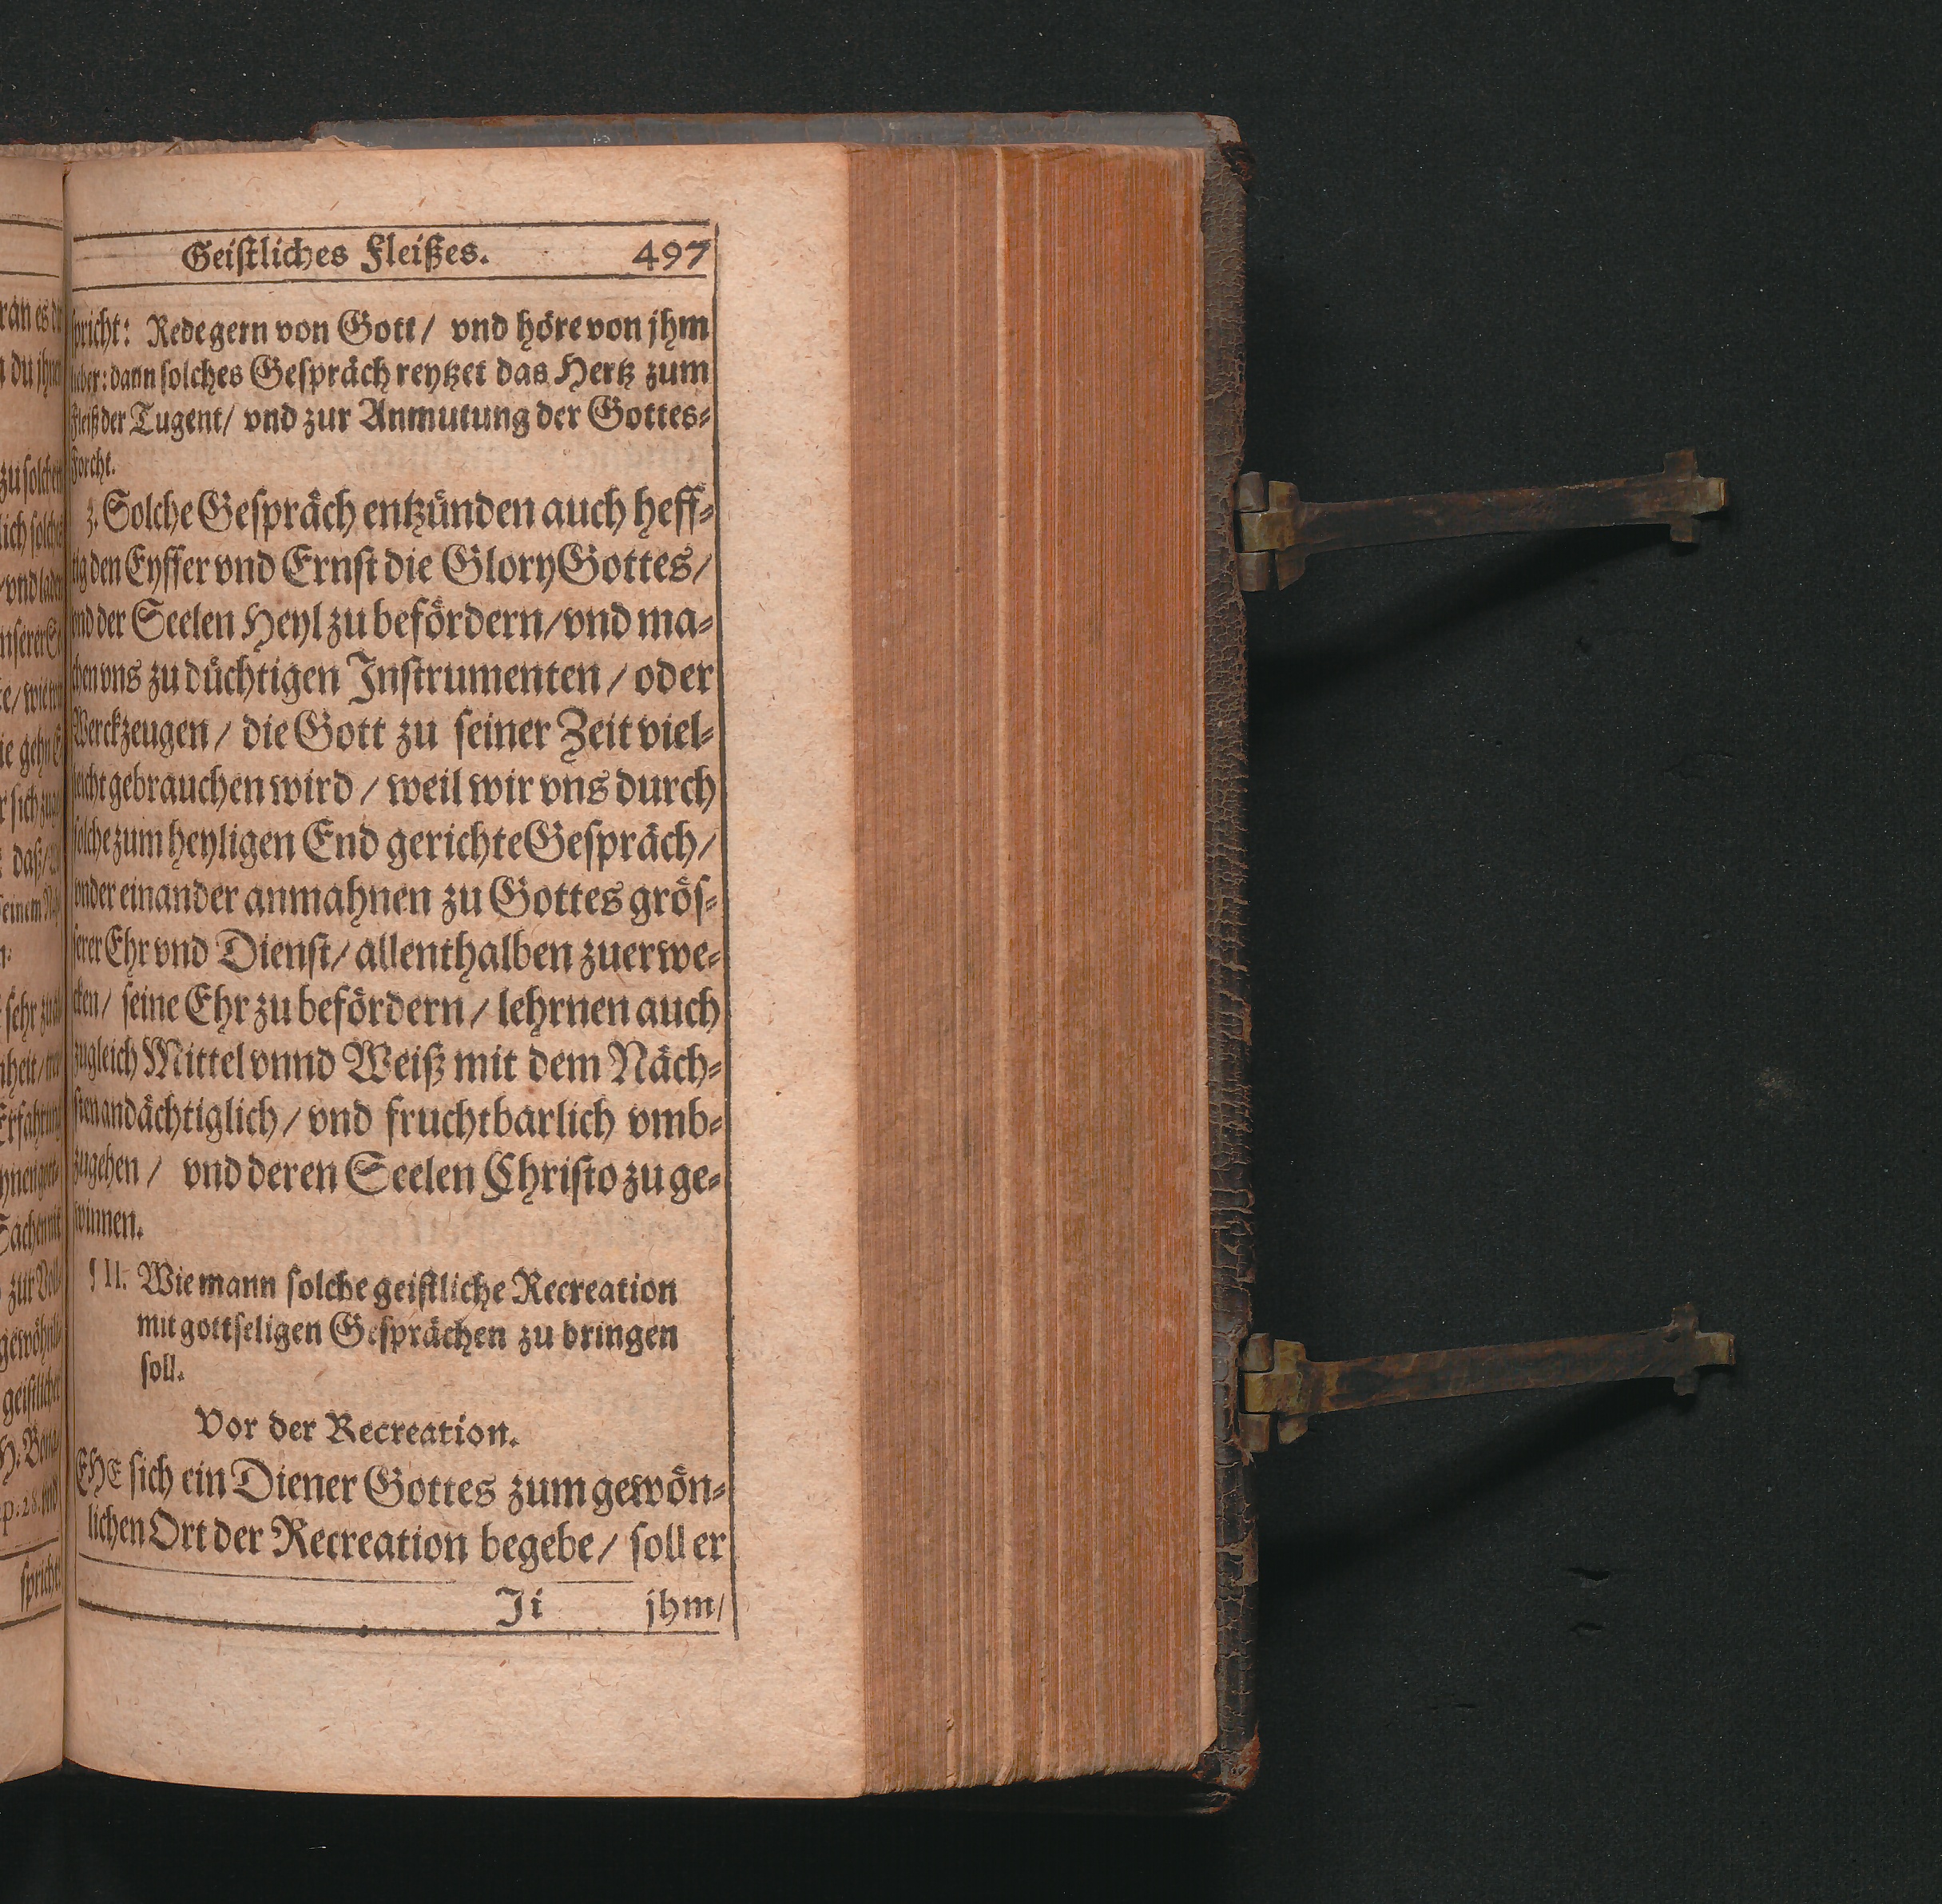 Geistliches Fleißes. 497
spricht: Rede gern von Gott / vnd höre von jhm
lieber: dann solches Gespräch reytzet das Hertz zum
Fleiß der Tugent / vnd zur Anmutung der Gottes-
Forcht.
3. Solche Gespräch entzünden auch heff-
tig den Eyffer vnd Ernst die Glory Gottes /
vnd der Seelen Heyl zu befördern / vnd ma-
chen vns zu düchtigen Instrumenten / oder
Werckzeugen / die Gott zu seiner Zeit viel-
leicht gebrauchen wird / weil wir vns durch
solche zum heyligen End gerichte Gespräch /
vnder einander anmahnen zu Gottes grös-
serer Ehr vnd Dienst / allenthalben zuerwe-
cken / seine Ehr zu befördern / lehrnen auch
zugleich Mittel vnnd Weiß mit dem Näch-
sten andächtiglich / vnd fruchtbarlich vmb-
zugehen / vnd deren Seelen Christo zu ge-
winnen.
¶ II. Wie mann solche geistliche Recreation
mit gottseligen Gesprächen zu bringen
soll.
Vor der Recreation.
EHE sich ein Diener Gottes zum gewön-
lichen Ort der Recreation begebe / soll er
Ii jhm /